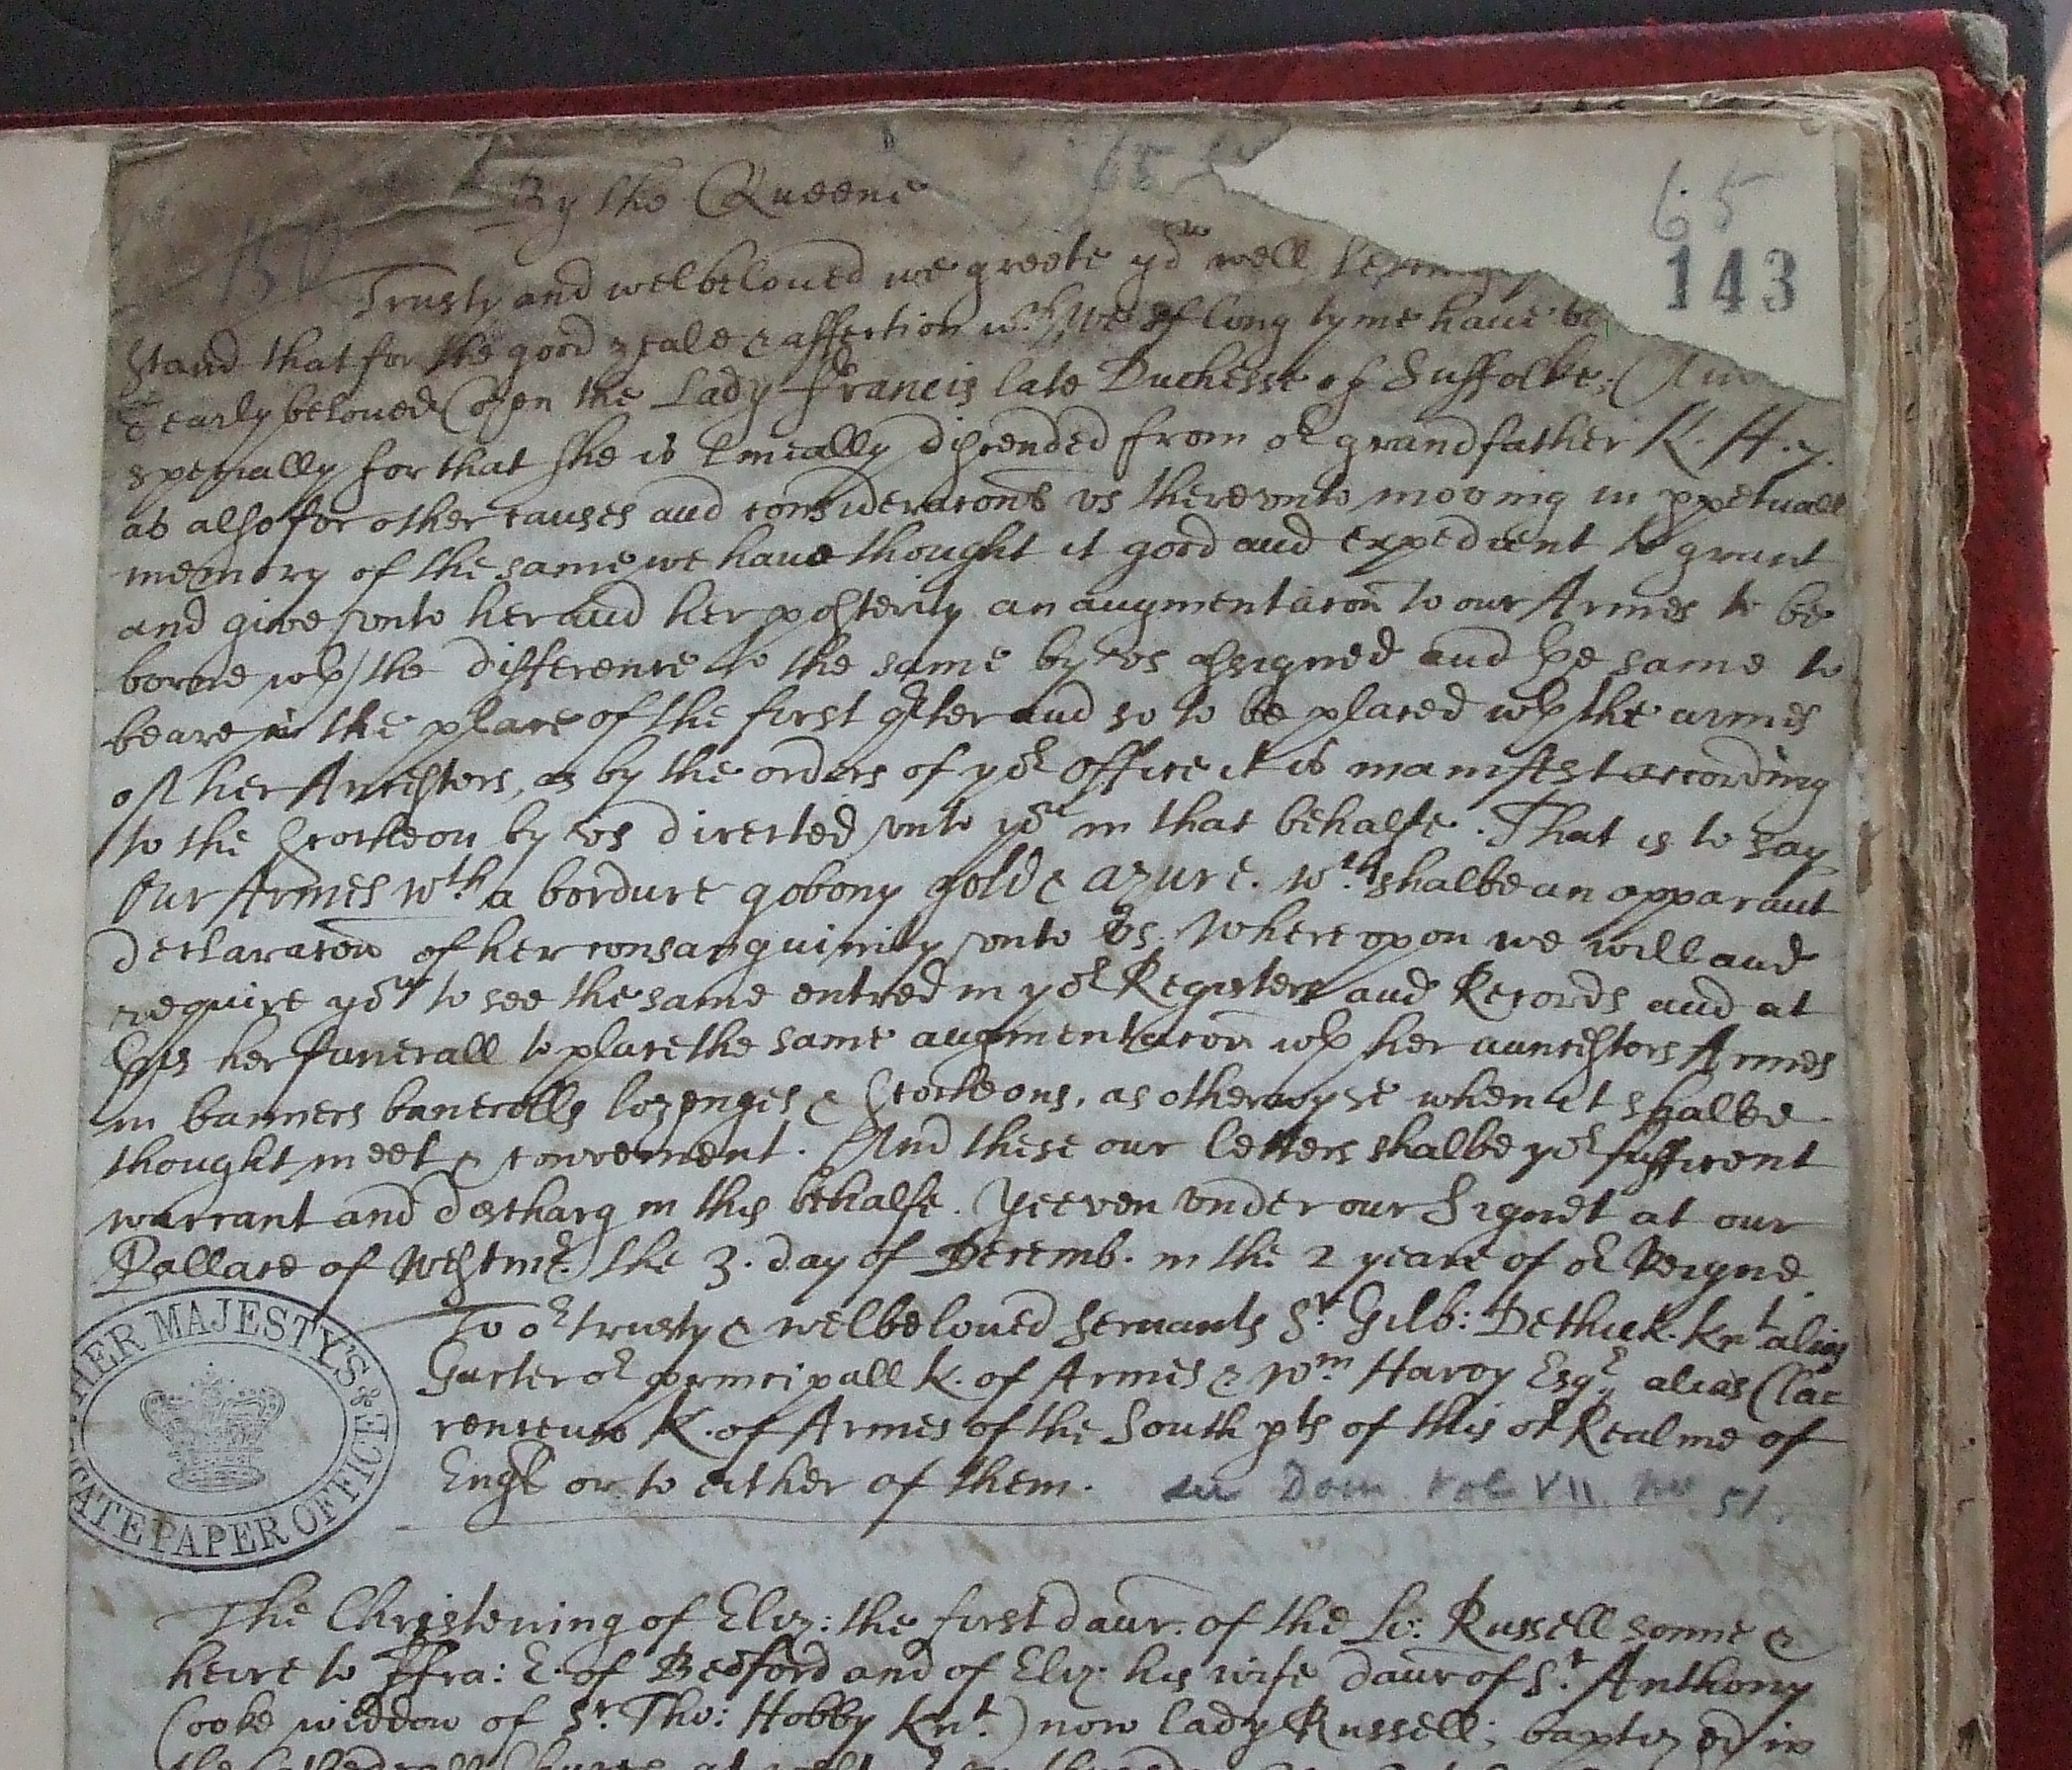 65
65
143
By the Queene
150
Trusty and welbeloued we greete you well
stand that for the good zeale & affection wch we of long tyme haue be
dearly beloued Cosen the Lady Francis late Duchesse of Suffolke,
specially for that she is lineally discended from or grandfather K. H. 7.
as also for other causes and consideracons vs therevnto moving in ppetuall
memory of the same we haue thought it good and expedient to grant
and give vnto her and her posterity an augmentacon to our Armes to be
borne wth the difference to the same by vs assigned and the same to
beare in the place of the first qrter and so to be placed wth the armes
of her Ancestors, as by the orders of yor office it is manifest according
to the scocheon by vs directed vnto you in that behalfe. That is to say
Our Armes wth a bordure gobony gold & azure. wch shalbe an apparant
declaracon of her consanguinity vnto vs. Whereopon we will and
require you to see the same entred in yor Registers and Records and at
this her funerall to place the same augmentacon wth her auncestors Armes
in banners banerolls lozenges & scocheons, as otherwyse when it shalbe
thought meet & convenient. And these our letters shalbe yor sufficient
warrant and discharg in this behalfe. Yeeven vnder our Signet at our
Pallace of Westmr. the 3. day of Decemb. in the 2 yeare of or Reigne.
To or trusty & welbeloued servants Sr. Gilb: Dethick. Knt alias
Garter or principall K. of Armes & Wm Harvy Esqr. alias Clar
renceux K. of Armes of the South pts of this or Realme of
Engl or to either of them. see Dom Vol VII no 51.
HER MAJESTY'S
STATE PAPER OFFICE
The Christening of Eliz: the first daur. of the Lo: Russell sonne &
heire to Ffra: E. of Bedford and of Eliz. his wife daur of Sr. Anthony
Cooke widdow of Sr. Tho: Hobby Knt.) now lady Russell; baptized in